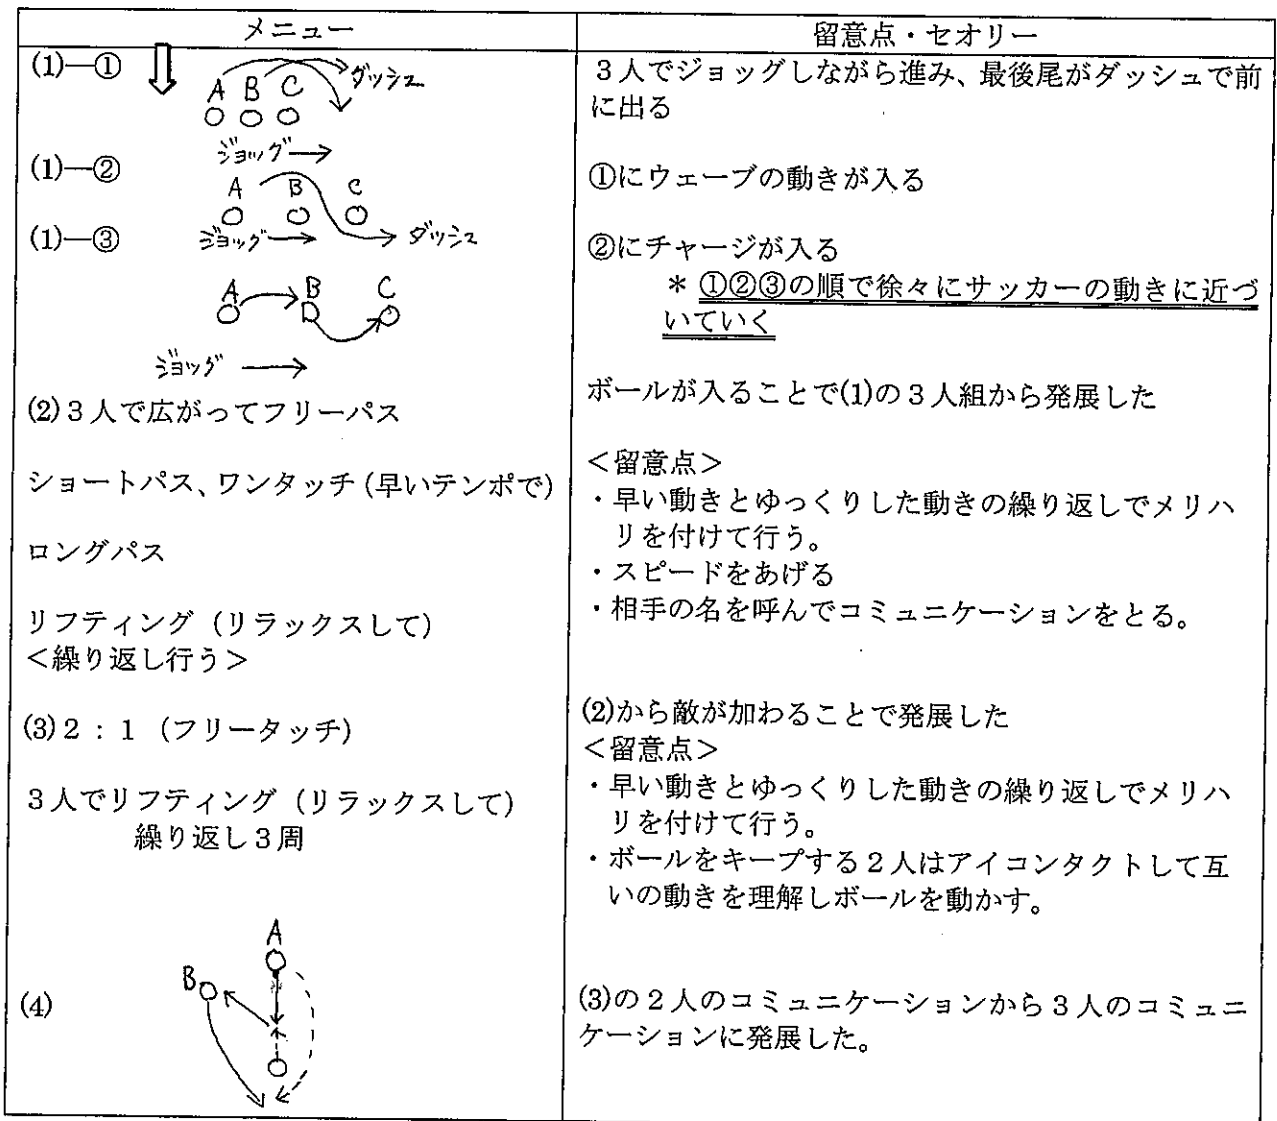 メニュー
留意点・セオリー
(1)―①
A B C
ダッシュ
ジョッグ
3人でジョッグしながら進み、最後尾がダッシュで前
に出る
(1)―②
A B C
ジョッグ
ダッシュ
①にウェーブの動きが入る
(1)―③
A B C
ジョッグ
②にチャージが入る
＊ ①②③の順で徐々にサッカーの動きに近づ
いていく
(2)3人で広がってフリーパス
ショートパス、ワンタッチ(早いテンポで)
ロングパス
リフティング（リラックスして）
＜繰り返し行う＞
ボールが入ることで(1)の3人組から発展した
＜留意点＞
・早い動きとゆっくりした動きの繰り返しでメリハ
リを付けて行う。
・スピードをあげる
・相手の名を呼んでコミュニケーションをとる。
(3)2：1（フリータッチ）
3人でリフティング（リラックスして）
繰り返し3周
(2)から敵が加わることで発展した
＜留意点＞
・早い動きとゆっくりした動きの繰り返しでメリハ
リを付けて行う。
・ボールをキープする2人はアイコンタクトして互
いの動きを理解しボールを動かす。
(4)
A
B
(3)の2人のコミュニケーションから3人のコミュニ
ケーションに発展した。